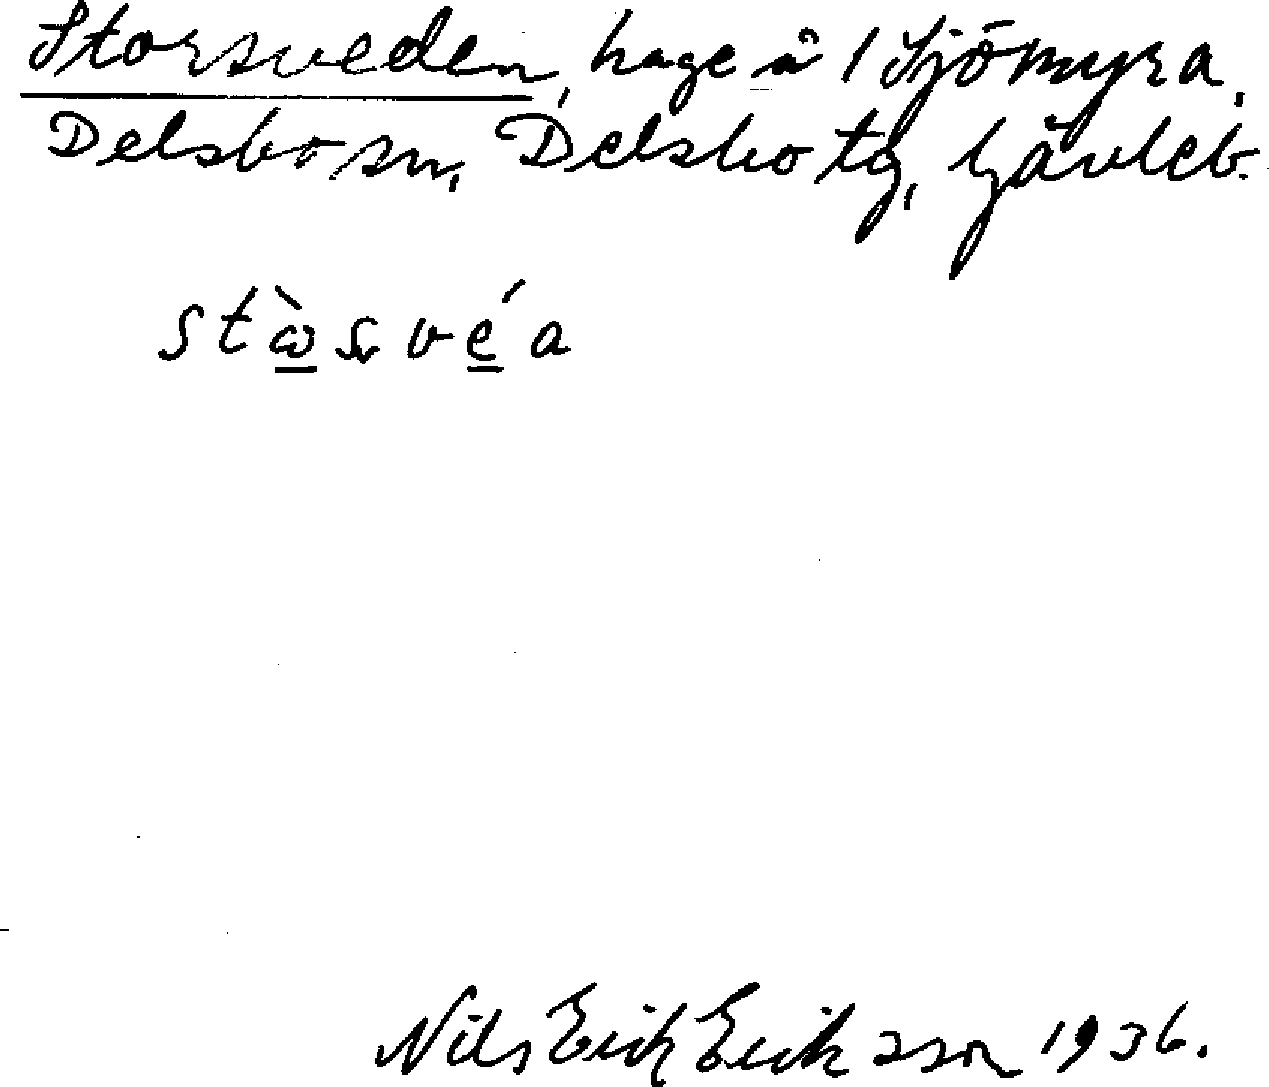 Storsveden, hage å 1 Sjömyra,
Delsbo sn, Delsbo tg, Gävleb.
stὼsvéa
Nils Erik Eriksson 1936.